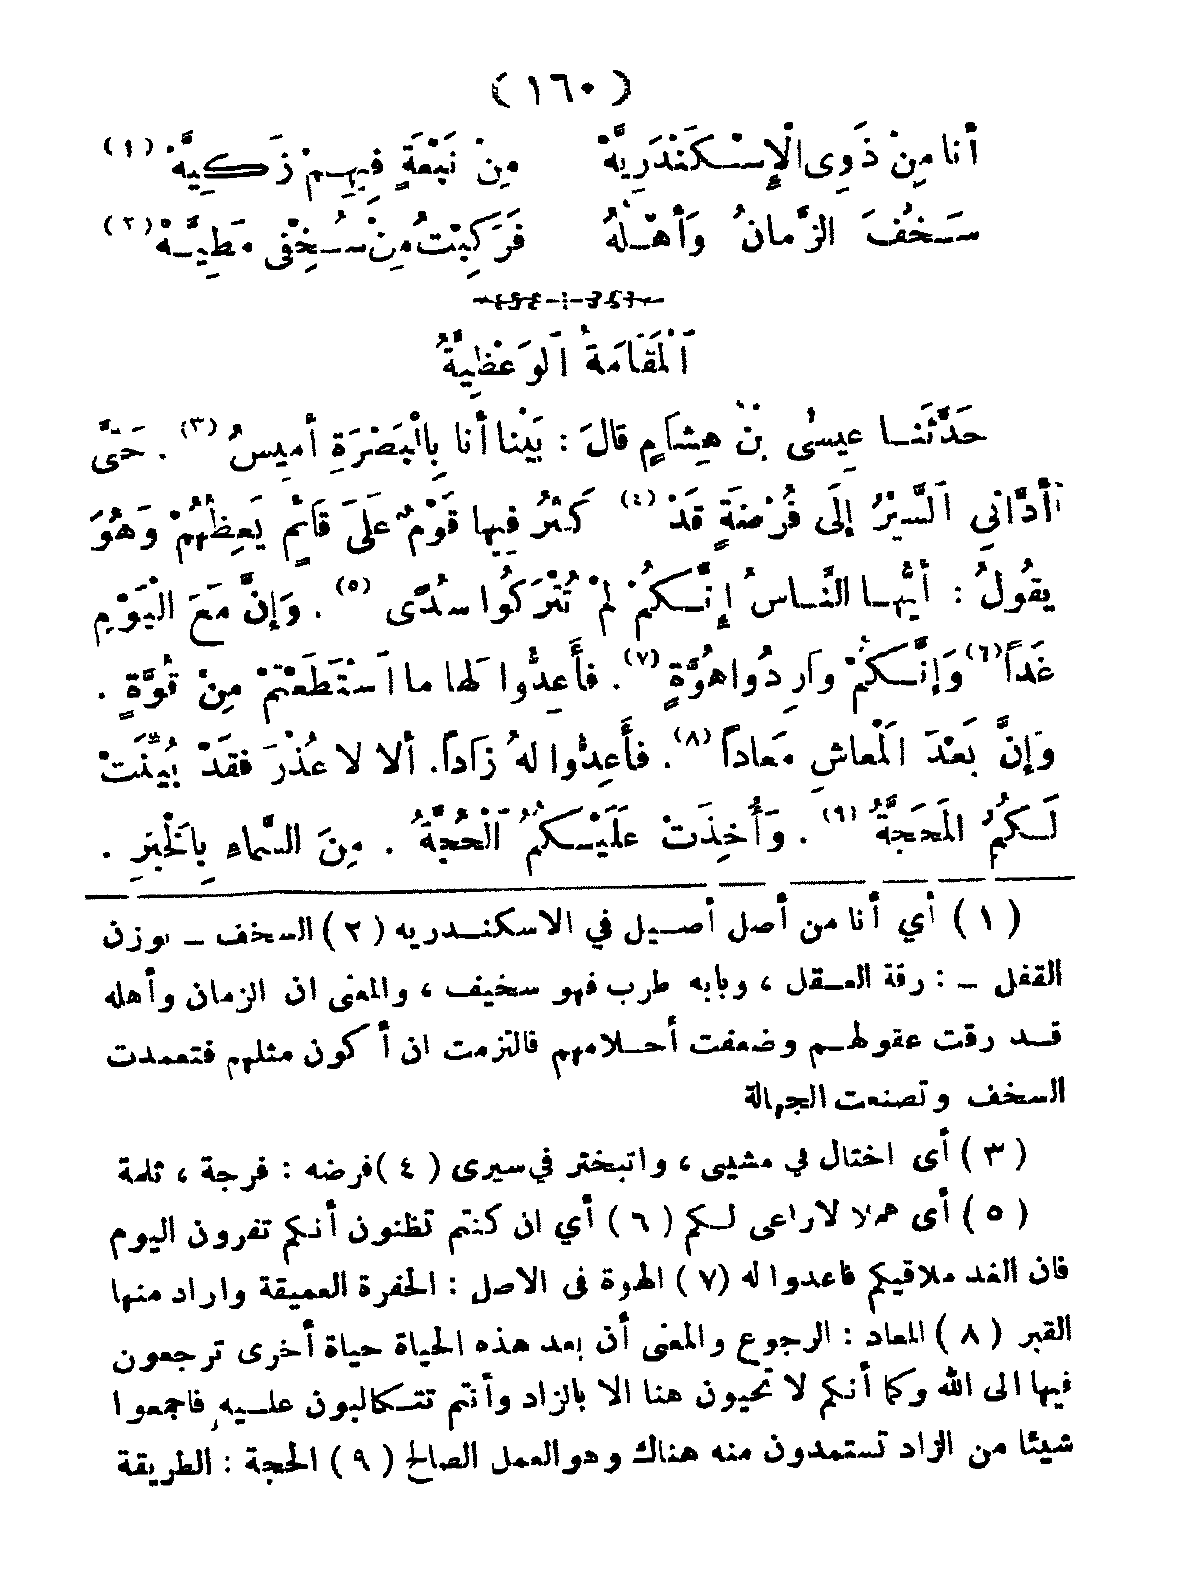 ( ١٦٠ )
أَنا مِنْ ذَوِى الْإِسْكَنْدَرِيَّهْ مِنْ نَبْعَةٍ فِيهِمْ زَكِيَّهْ (١)
سَخُفَ الزَّمانُ وَأَهْلُهُ فَرَكِبْتُ مِنْ سُخْفِى مَطِيَّهْ (٢)
اَلْمَقَامَةُ اَلْوَعْظِيَّةُ
حَدَّثَنا عِيسٰى بْنُ هِشامٍ قالَ : بَيْنا أَنا بِالْبَصْرَةِ أَمِيسُ (٣) . حَتَّى
أَدَّانِي اَلسَّيْرُ إِلَى فُرْضَةٍ قَدْ (٤) كَثُرَ فِيها قَوْمٌ عَلَى قائِمٍ يَعِظُهُمْ وَهُوَ
يَقُولُ : أَيُّها النَّاسُ إِنَّكُمْ لَمْ تُتْرَكُوا سُدًى (٥) . وَإِنَّ مَعَ الْيَوْمِ
غَداً (٦) وَإِنَّكُمْ وارِدُوا هُوَّةٍ (٧) . فَأَعِدُّوا لَها ما اَسْتَطَعْتُمْ مِنْ قُوَّةٍ .
وَإِنَّ بَعْدَ الْمَعاشِ مَعاداً (٨) . فَأَعِدُّوا لَهُ زَاداً. أَلا لا عُذْرَ فَقَدْ بُيِّنَتْ
لَكُمُ الْمَحَجَّةُ (٩) . وَأُخِذَتْ عَلَيْكُمُ اَلْحُجَّةُ . مِنَ السَّماءِ بِالْخَبَرِ .
( ١ ) أي أنا من أصل أصيل في الاسكندريه ( ٢ ) السخف ــ بوزن
القفل ــ : رقة العقل ، وبابه طرب فهو سخيف ، والمعنى ان الزمان وأهله
قد رقت عقولهم وضعفت أحلامهم فالتزمت ان أكون مثلهم فتعمدت
السخف وتصنعت الجهالة
( ٣ ) أى اختال في مشيى ، واتبختر في سيرى ( ٤ ) فرضه : فرجة ، ثلمة
( ٥ ) أى هملا لاراعى لكم ( ٦ ) أي ان كنتم تظنون أنكم تفرون اليوم
فان الغد ملاقيكم فاعدوا له (٧ ) الهوة فى الاصل : الحفرة العميقة واراد منها
القبر ( ٨ ) المعاد : الرجوع والمعنى أن بعد هذه الحياة حياة أخرى ترجعون
فيها الى الله وكما أنكم لا تحيون هنا الا بالزاد وأنتم تتكالبون عليه فاجمعوا
شيئا من الزاد تستمدون منه هناك وهو العمل الصالح ( ٩ ) الحجة : الطريقة